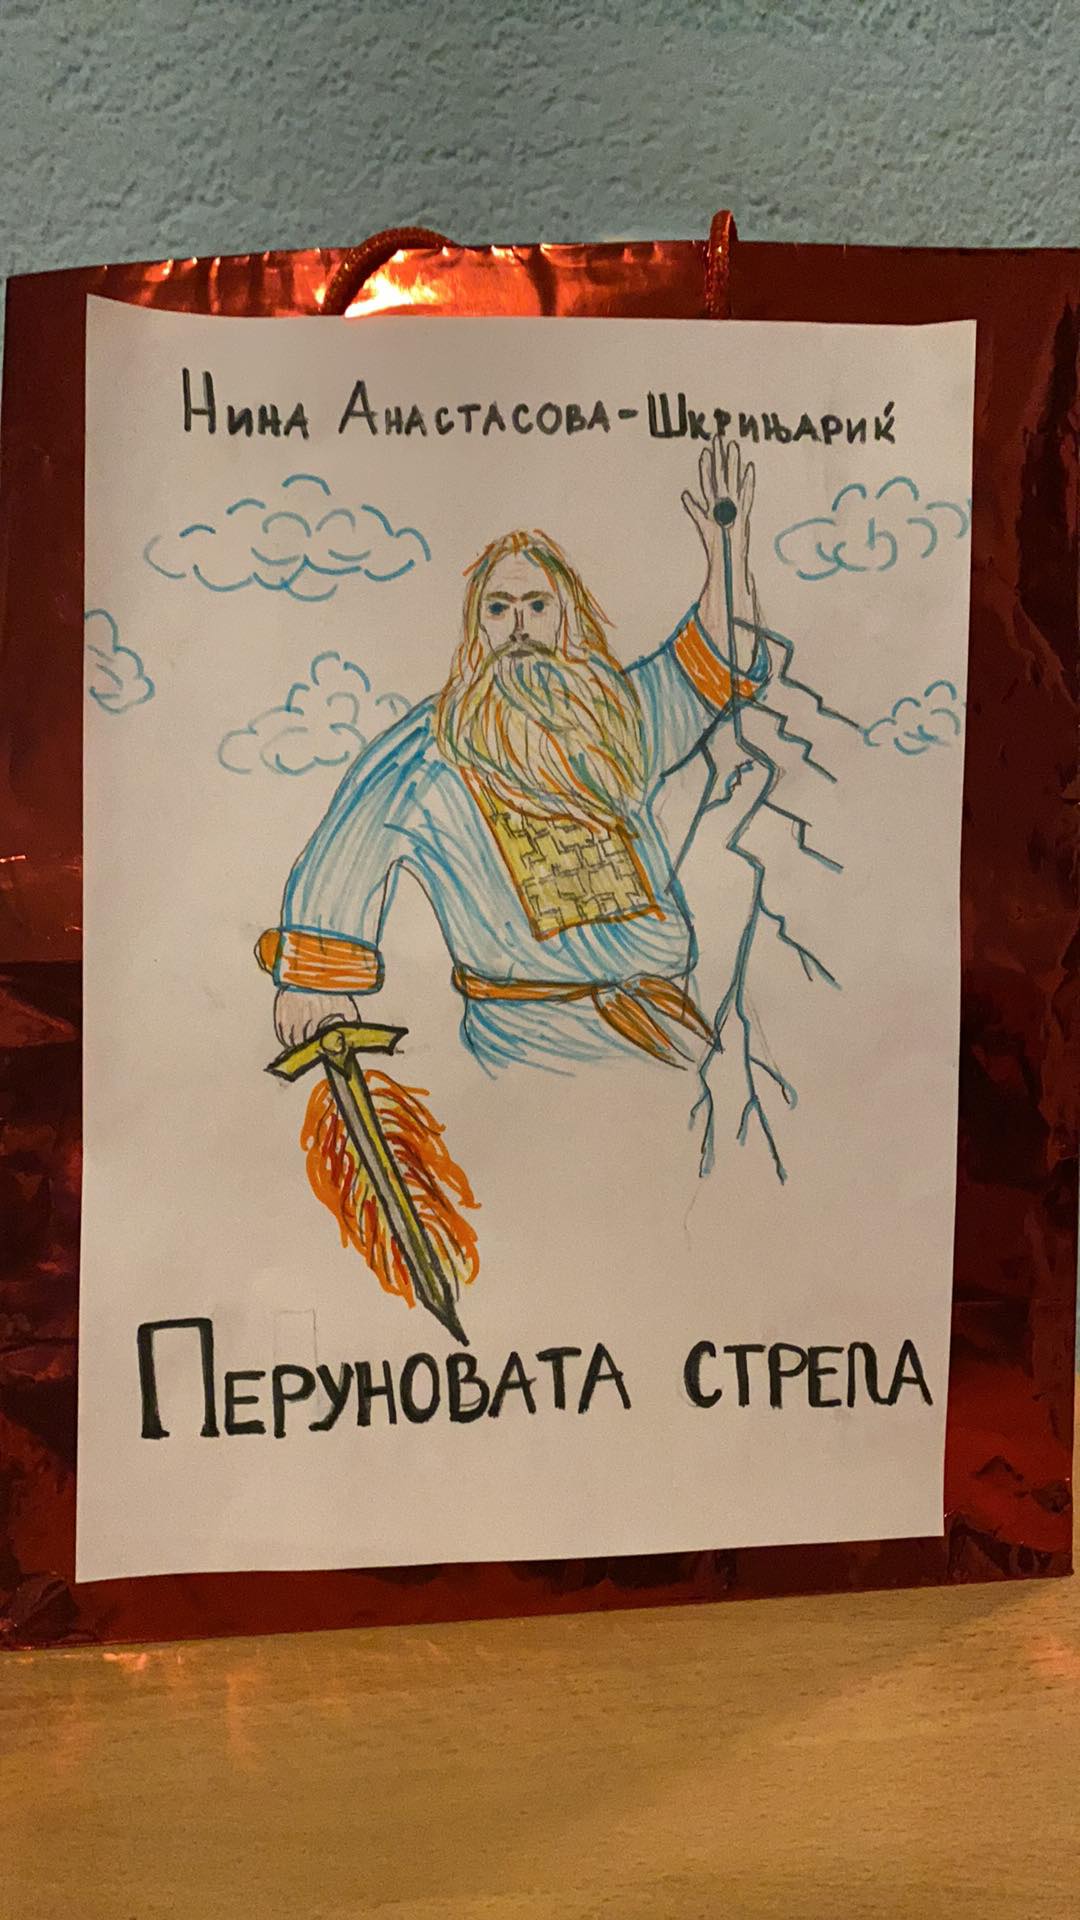 Нина Анастасова-Шкрињариќ
Перуновата стрела